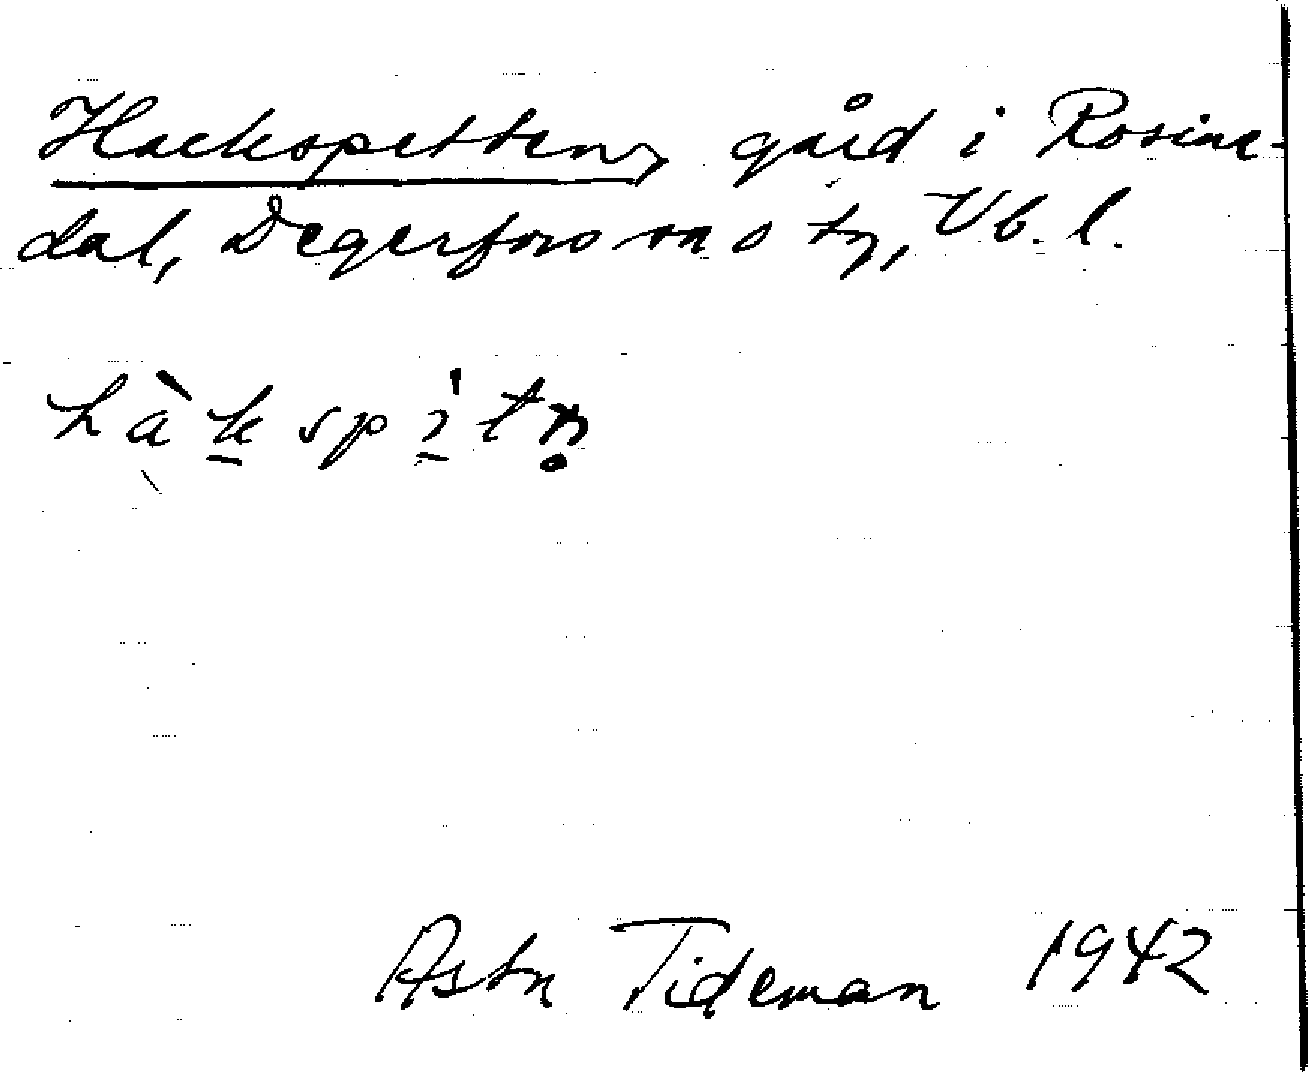 Hackspetten, gård i Rosine-
dal, Degerfors sn, Vb. l.
hàkspìtn̥
Astn Tideman 1942